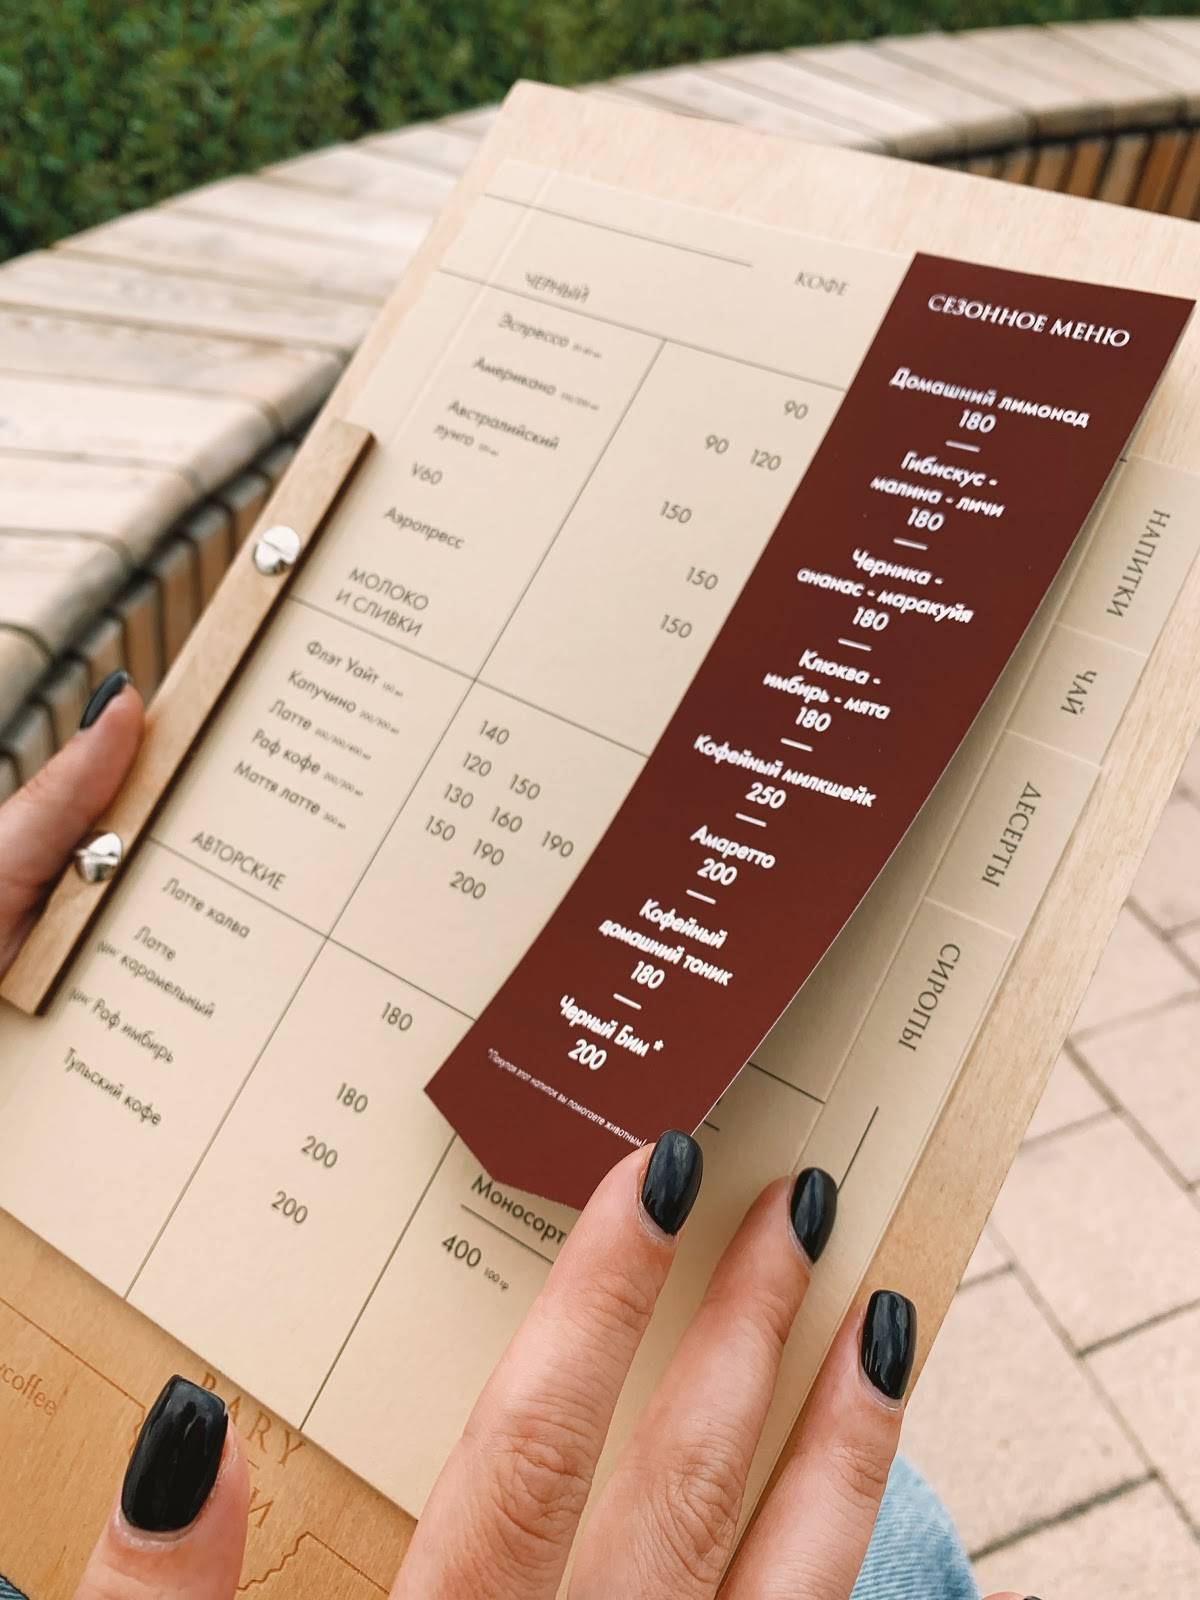 КОФЕ
ЧЕРНЫЙ
Эспрессо
90
Американо
90 120
Австралийский
лунго
150
V60
150
Аэропресс
150
МОЛОКО
И СЛИВКИ
Флэт Уайт
140
Капучино
120 150
Латте
130 160 190
Раф кофе
150 190
Маття латте
200
АВТОРСКИЕ
Латте халва
180
Латте
карамельный
180
Раф имбирь
200
Тульский кофе
200
Моносорт
400 100 гр
СЕЗОННОЕ МЕНЮ
Домашний лимонад
180
Гибискус -
малина - личи
180
Черника -
ананас - маракуйя
180
Клюква -
имбирь - мята
180
Кофейный милкшейк
250
Амаретто
200
Кофейный
домашний тоник
180
Черный Бим *
200
*Покупая этот напиток вы помогаете животным!
НАПИТКИ
ЧАЙ
ДЕСЕРТЫ
СИРОПЫ
coffee
ARY